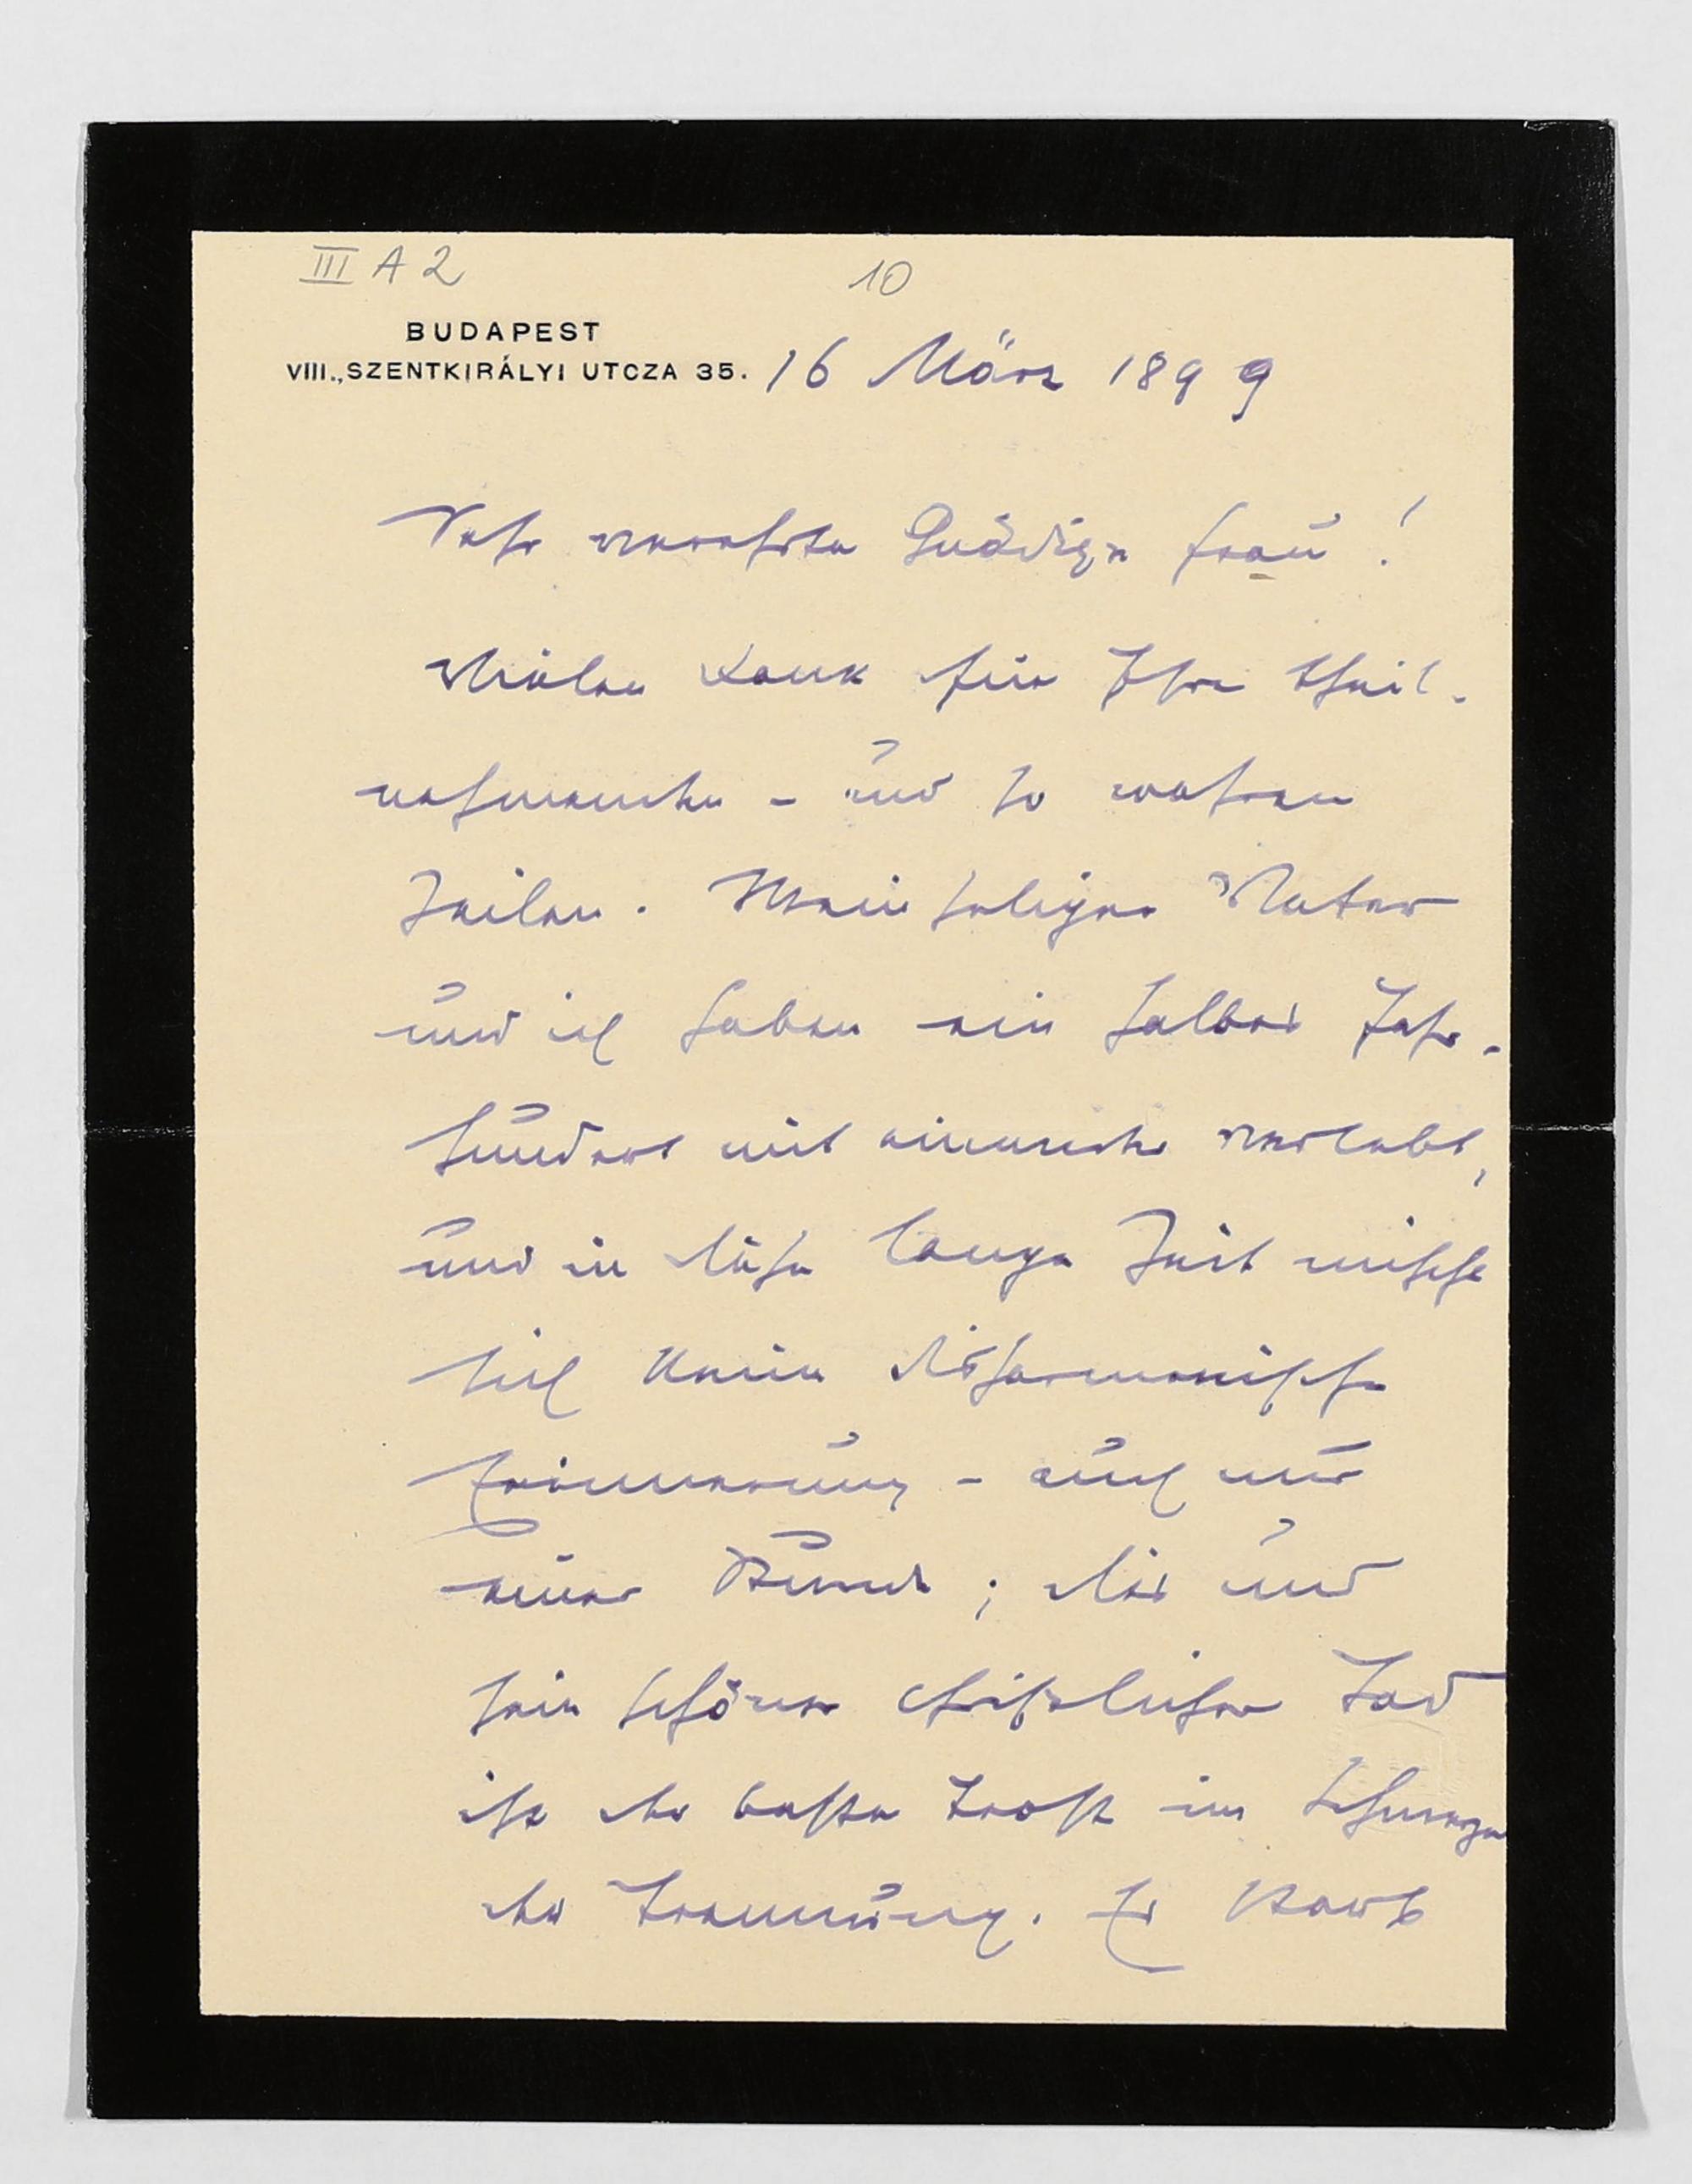 III A 2
10
BUDAPEST
VIII., SZENTKIRÁLYI UTCZA 35. 16 März 1899
Sehr verehrte Gnädige Frau!
Vielen Dank für Ihre theil-
nehmenden – und so wahren
Zeilen. Mein seliger Vater
und ich haben ein halbes Jahr-
hundert mit einander verlebt,
und in diese lange Zeit mischt
sich keine disharmonische
Erinnerung – auch nur
einer Stunde; dies und
sein schöner christlicher Tod
ist der beste Trost im Schmerze
der Trennung. Er starb